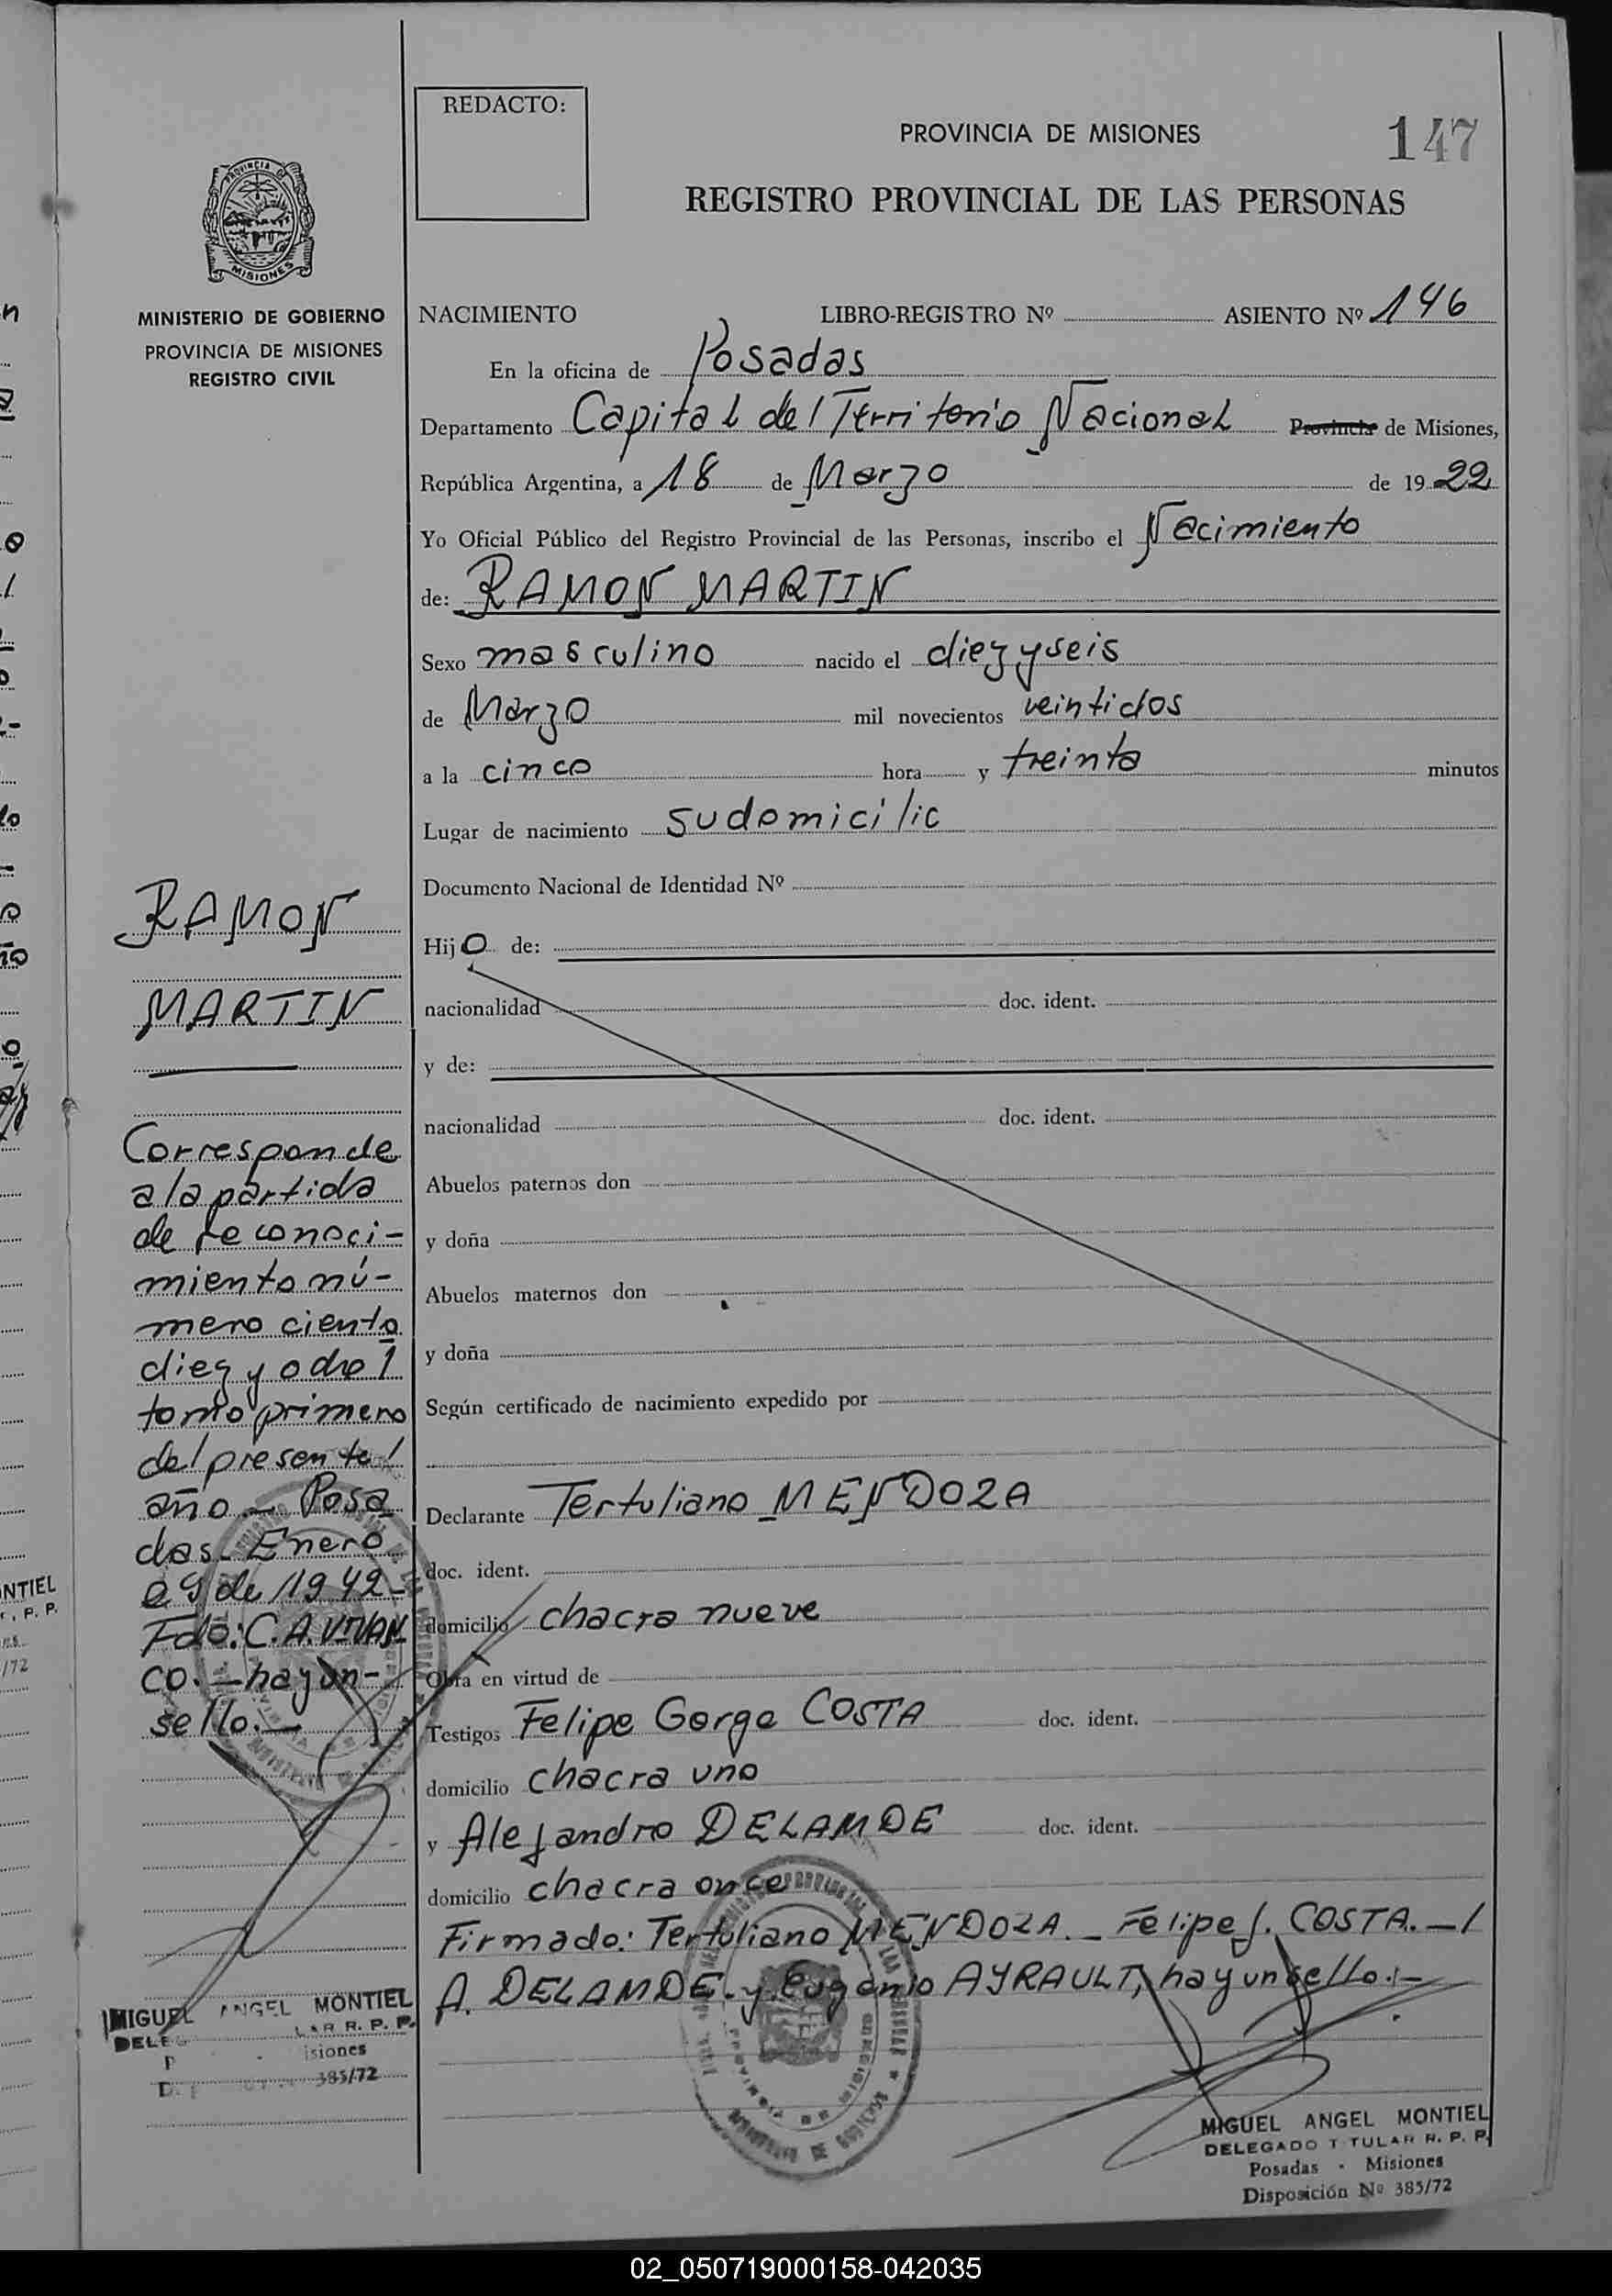 REDACTO:
PROVINCIA DE MISIONES
147
REGISTRO PROVINCIAL DE LAS PERSONAS
PROVINCIA DE
MISIONES
MINISTERIO DE GOBIERNO
PROVINCIA DE MISIONES
REGISTRO CIVIL
NACIMIENTO LIBRO-REGISTRO Nº ASIENTO Nº 146
En la oficina de Posadas
Departamento Capital del Territorio Nacional Provincia de Misiones,
República Argentina, a 18 de Marzo de 1922
Yo Oficial Público del Registro Provincial de las Personas, inscribo el Nacimiento
de: RAMON MARTIN
Sexo masculino nacido el diez y seis
de Marzo mil novecientos veintidos
a la cinco hora y treinta minutos
Lugar de nacimiento su domicilio
Documento Nacional de Identidad Nº
Hijo de:
nacionalidad doc. ident.
y de:
nacionalidad doc. ident.
Abuelos paternos don
y doña
Abuelos maternos don
y doña
Según certificado de nacimiento expedido por
Declarante Tertuliano MENDOZA
doc. ident.
domicilio chacra nueve
Obra en virtud de
Testigos Felipe Gorge COSTA doc. ident.
domicilio chacra uno
y Alejandro DELAMDE doc. ident.
domicilio chacra once
Firmado: Tertuliano MENDOZA. _ Felipe J. COSTA. _/
A. DELAMDE. y Eugenio AYRAULT, hay un sello.-
RAMON
MARTIN
Corresponde
a la partida
de reconoci-
miento nú-
mero ciento
diez y ocho /
tomo primero
del presente /
año - Posa
das. Enero
29 de 1942-
Fdo: C. A. VIVAN
CO. - hay un-
sello. -
MIGUEL ANGEL MONTIEL
R. P. P.
isiones
385/72
MIGUEL ANGEL MONTIEL
DELEGADO T TULAR R. P. P.
Posadas - Misiones
Disposición Nº 385/72
NTIEL
P. P.
/72
02_050719000158-042035